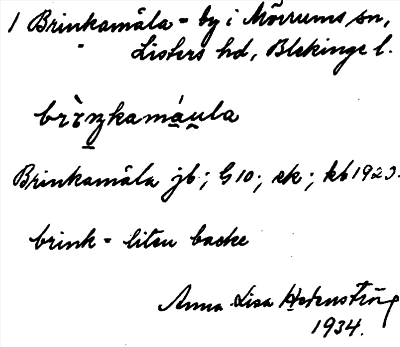 1 Brinkamåla - by i Mörrums sn,
Listers hd, Blekinge l.
brìn̠kamá̠u̠la
Brinkamåla jb; G10; ek; kb 1923.
brink = liten backe
Anna Lisa
1934.